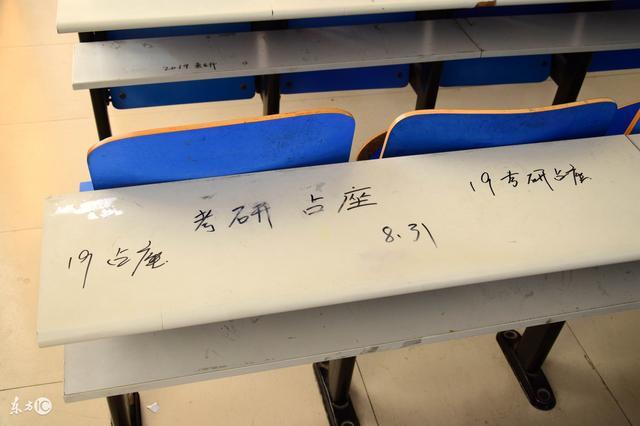 2019 考研
考研 占座
19考研占座
8.31
19 占座
东方IC